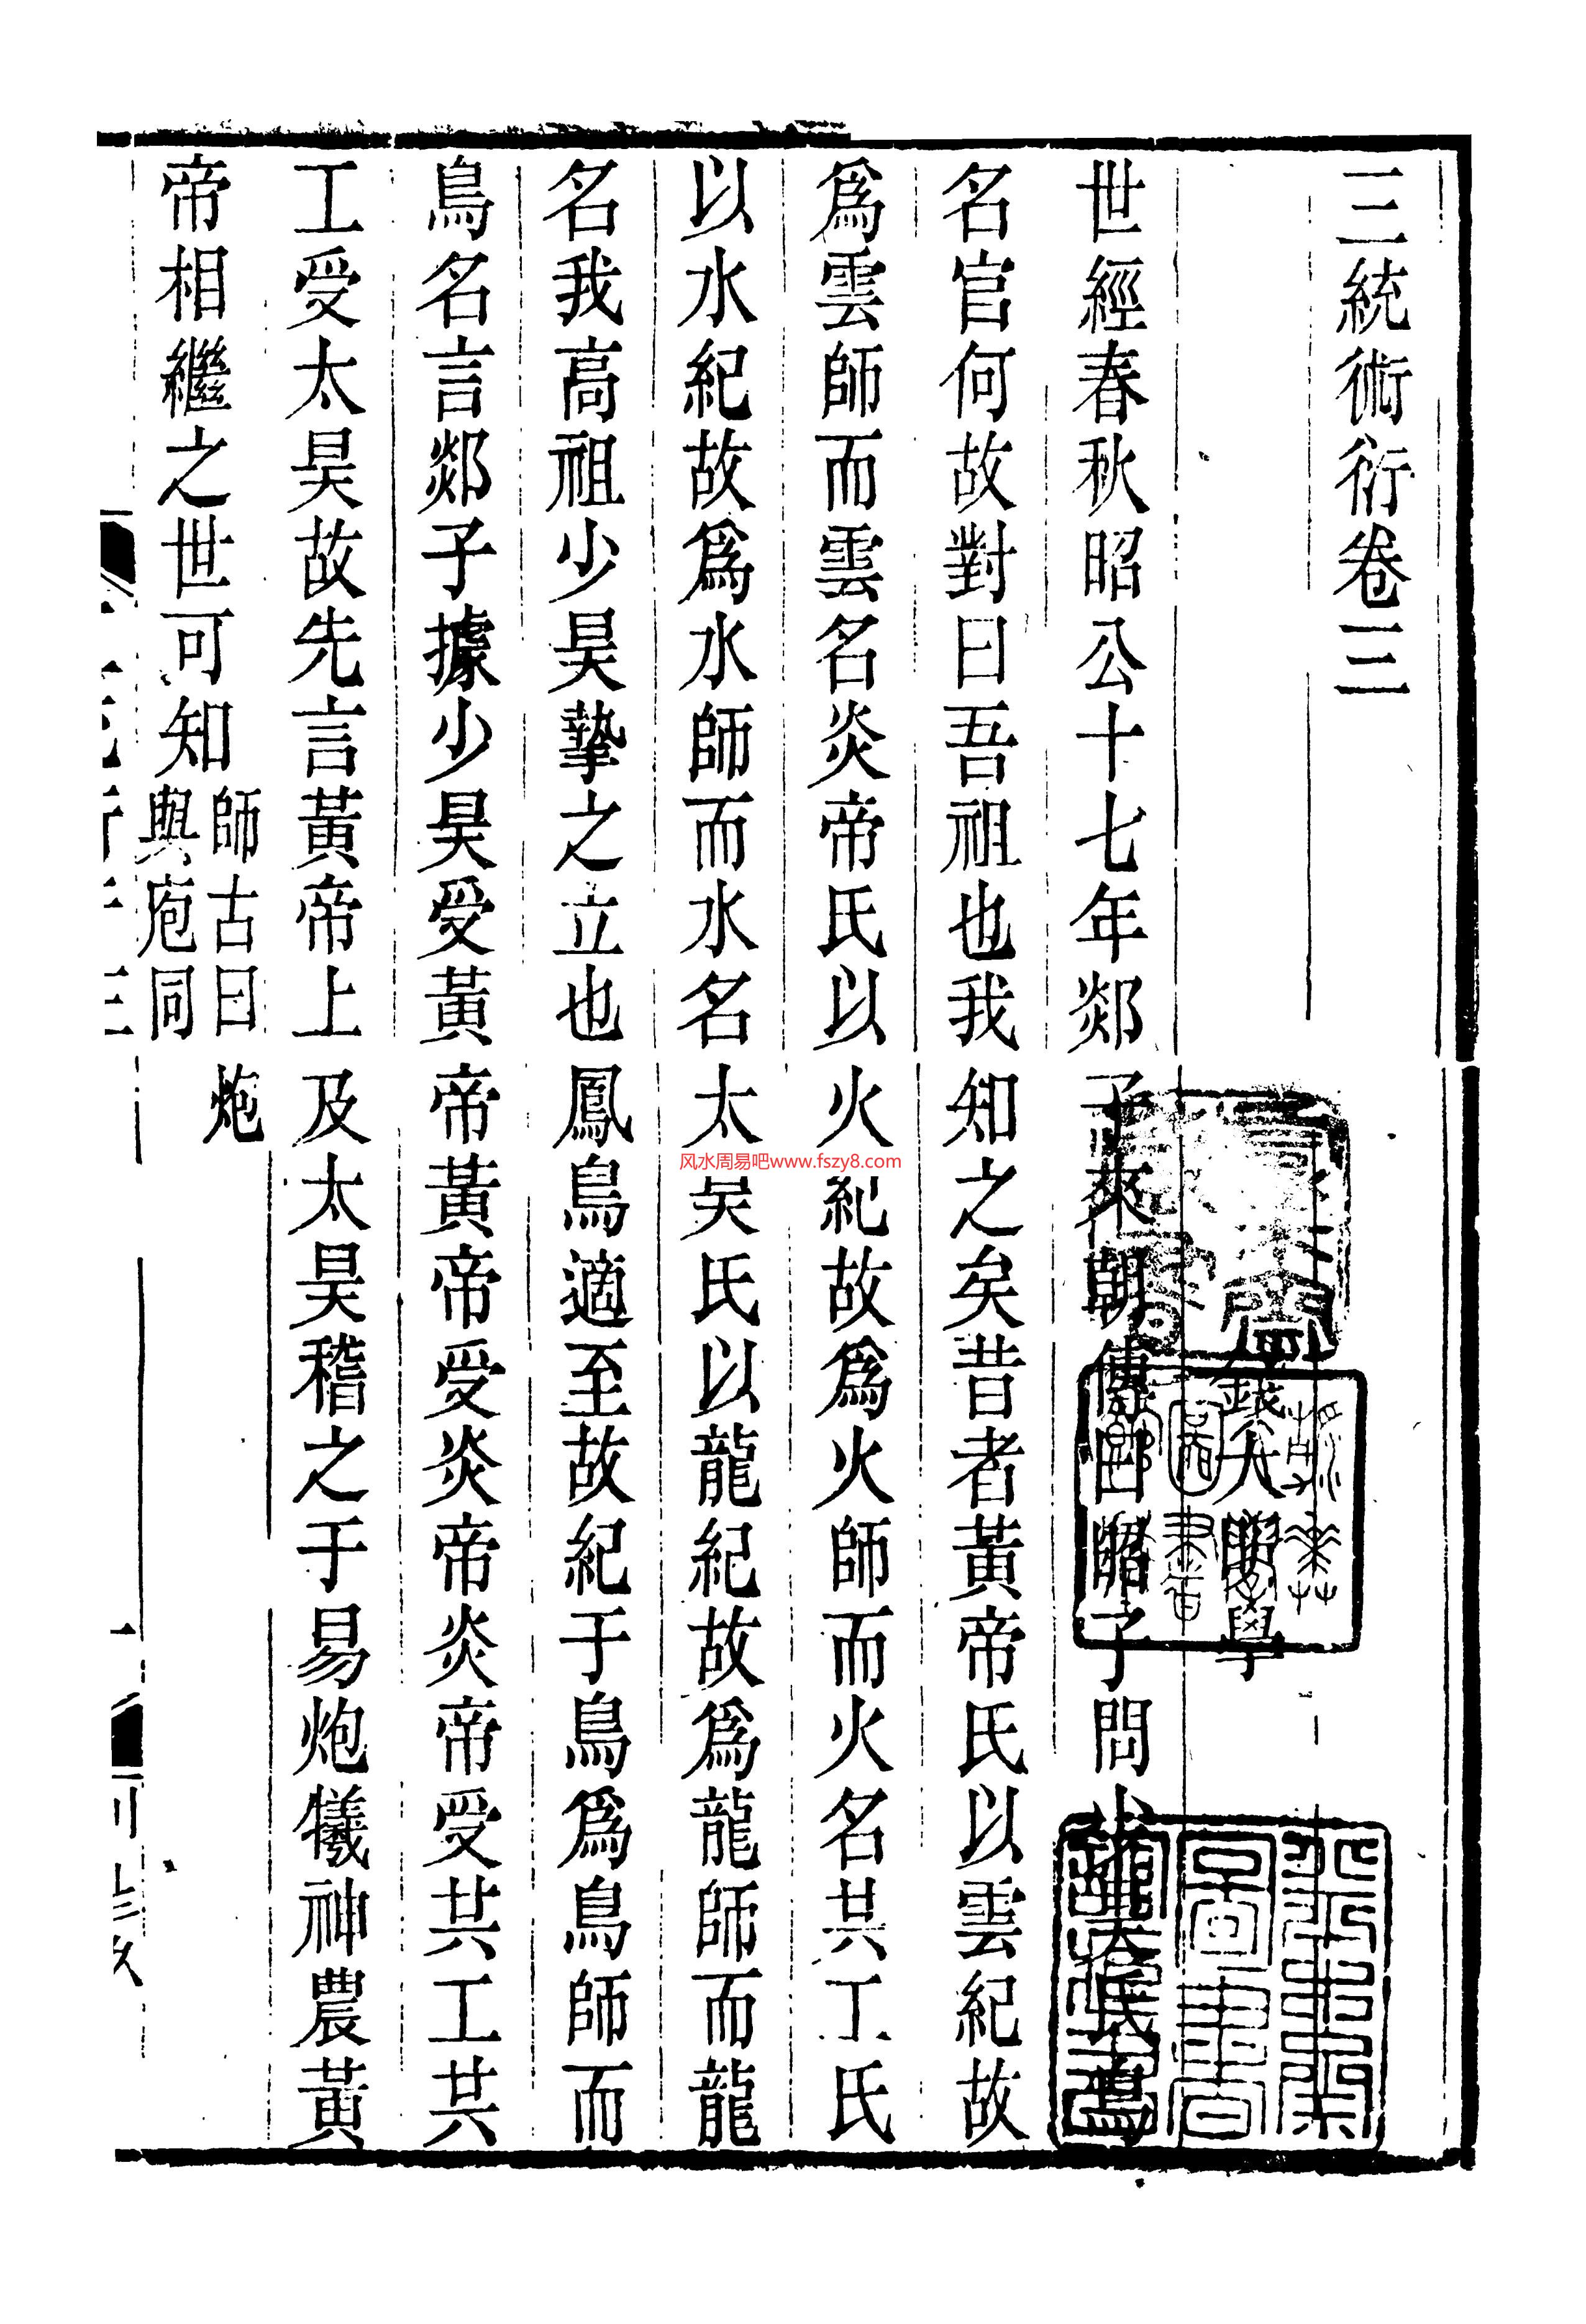 三統術衍卷三
錢大昕學
世經春秋昭公十七年郯子來朝傳曰昭子問少昊氏鳥
名官何故對曰吾祖也我知之矣昔者黃帝氏以雲紀故
爲雲師而雲名炎帝氏以火紀故爲火師而火名共工氏
以水紀故爲水師而水名太昊氏以龍紀故爲龍師而龍
名我高祖少昊摯之立也鳳鳥適至故紀于鳥爲鳥師而
鳥名言郯子據少昊受黃帝黃帝受炎帝炎帝受共工共
工受太昊故先言黃帝上及太昊稽之于易炮犧神農黃
帝相繼之世可知師古曰炮
與庖同
风水周易吧www.fszy8.com